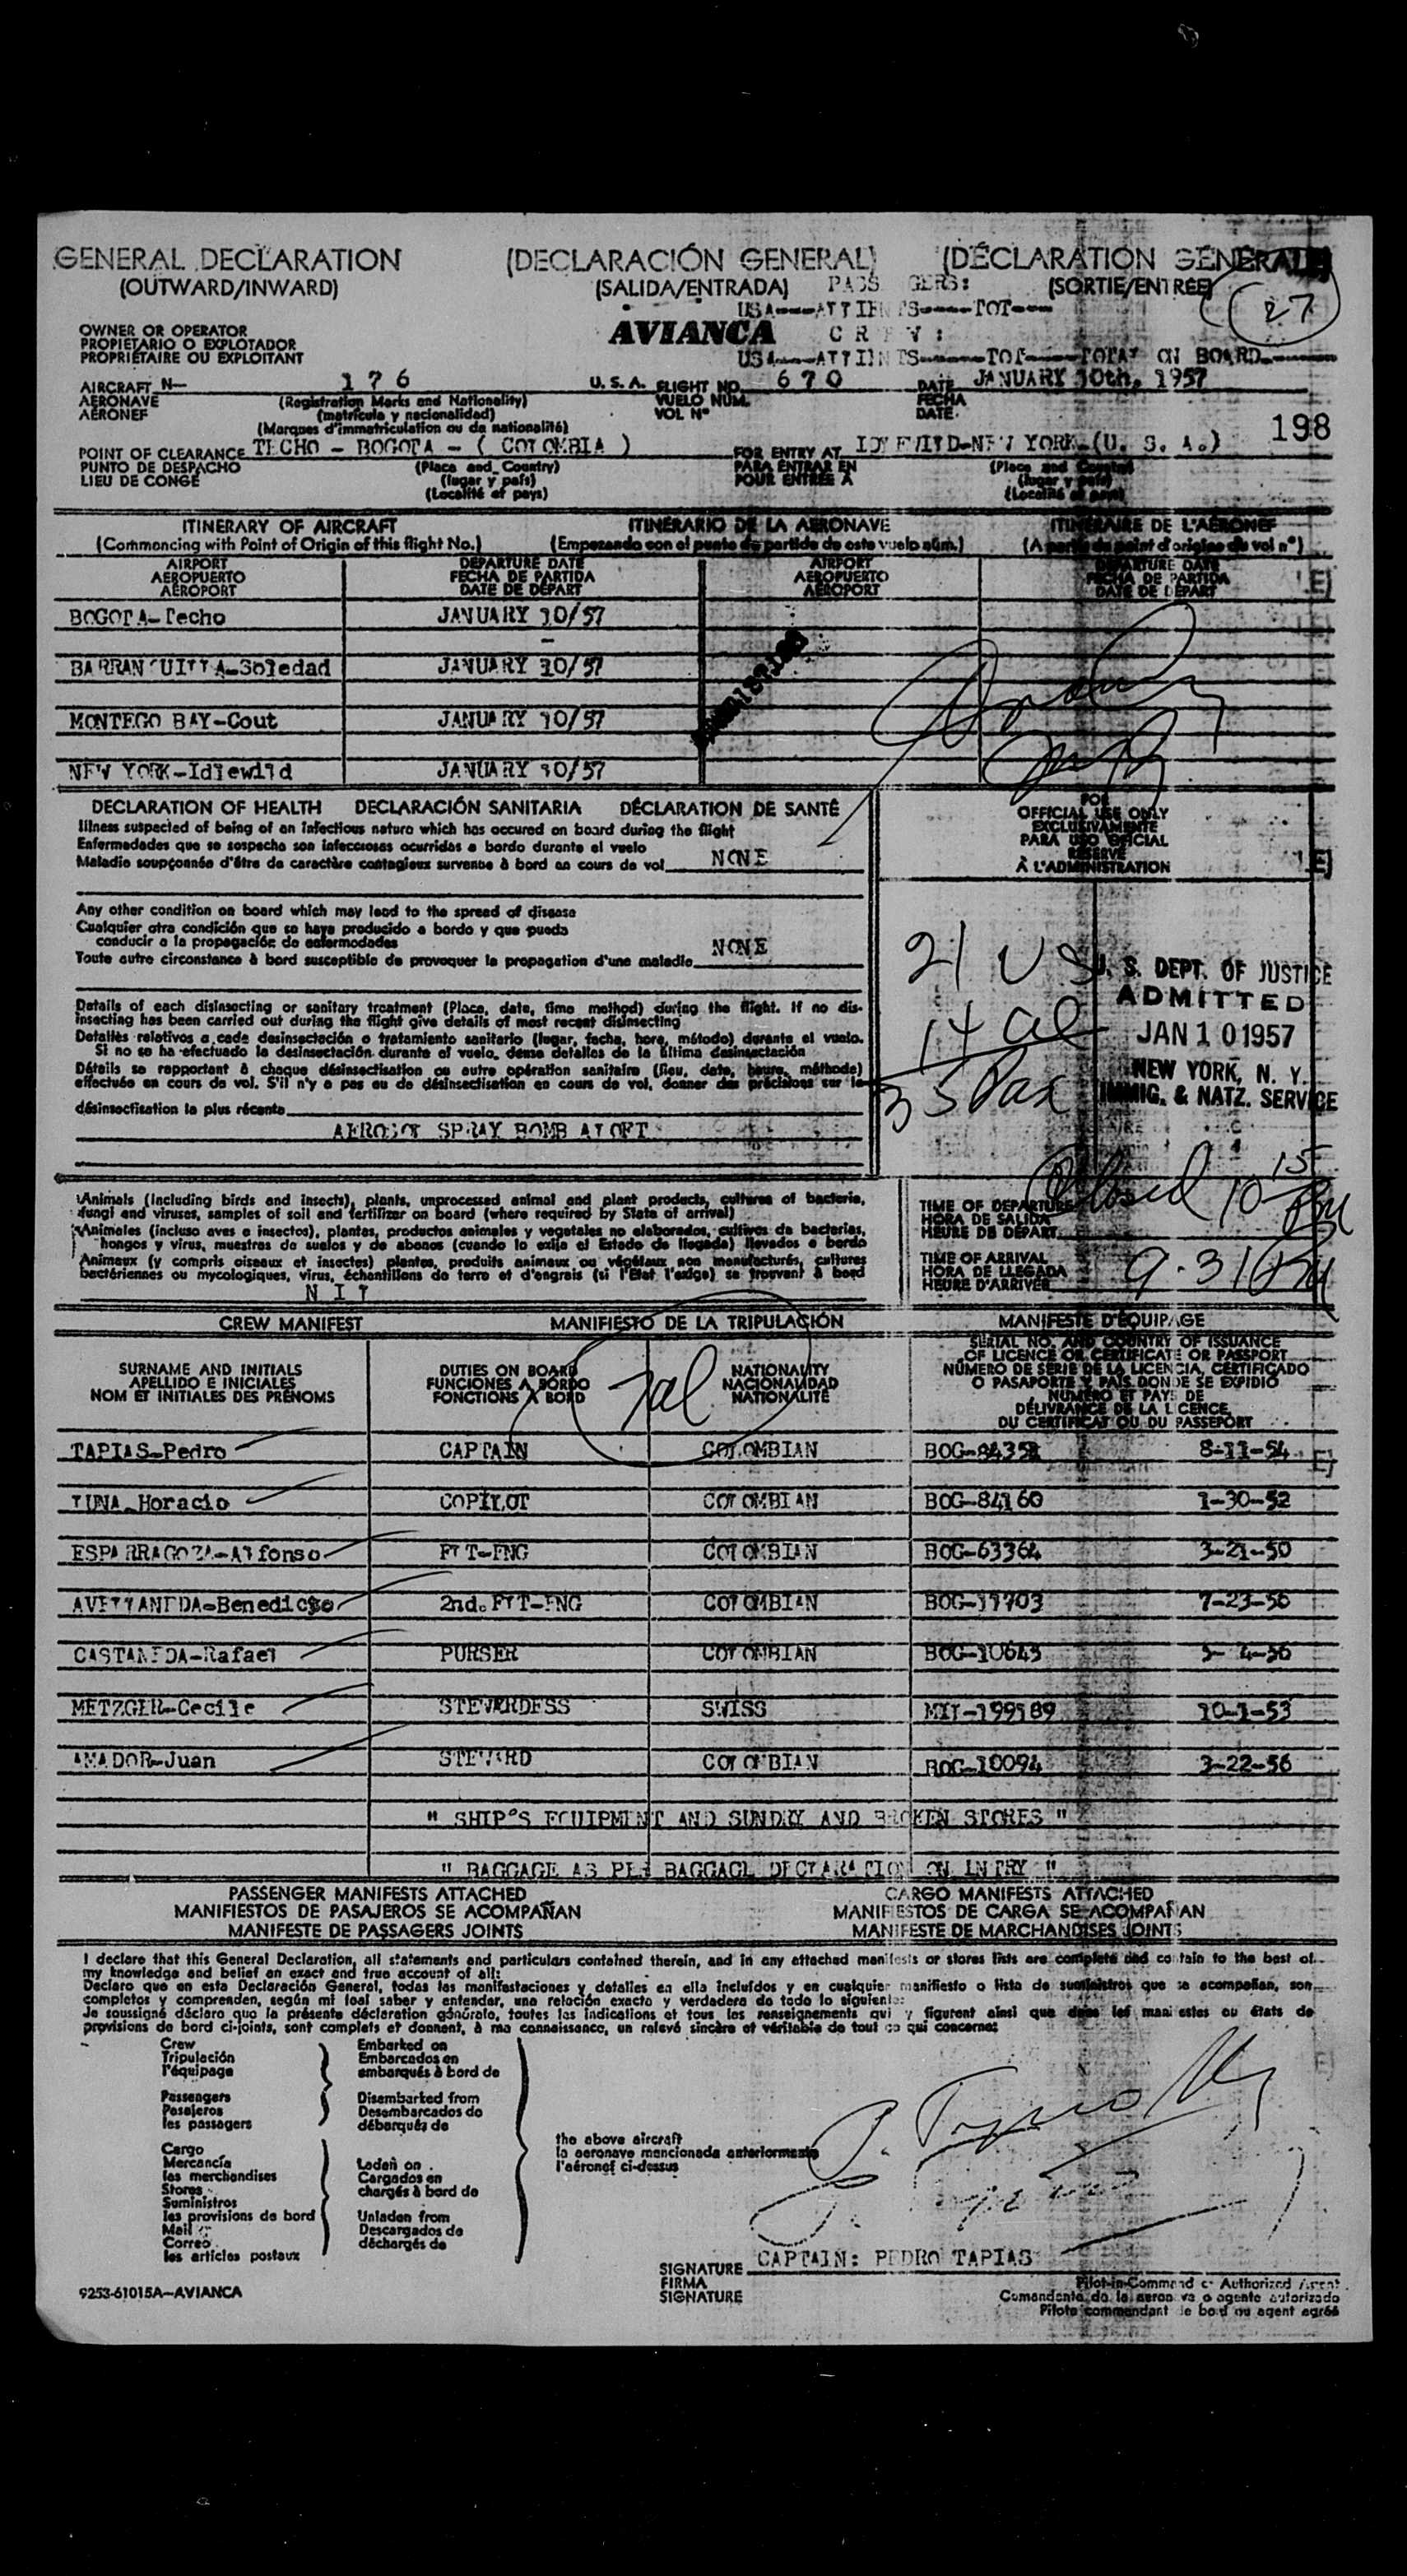 GENERAL DECLARATION (DECLARACIÓN GENERAL) (DÉCLARATION GÉNÉRALE)
(OUTWARD/INWARD) (SALIDA/ENTRADA) (SORTIE/ENTRÉE)
27
OWNER OR OPERATOR
PROPIETARIO O EXPLOTADOR
PROPRIÉTAIRE OU EXPLOITANT
AVIANCA
AIRCRAFT N— 176 U.S.A. FLIGHT NO. 670 DATE JANUARY 10th, 1957
AERONAVE (Registration Marks and Nationality) VUELO NÚM. FECHA
AÉRONEF (matrícula y nacionalidad) VOL Nº DATE
(Marques d'immatriculation ou de nationalité)
198
POINT OF CLEARANCE TECHO - BOGOTA - ( COLOMBIA ) FOR ENTRY AT IDLEWILD-NEW YORK-(U. S. A.)
PUNTO DE DESPACHO (Place and Country) PARA ENTRAR EN (Place and Country)
LIEU DE CONGÉ (lugar y país) POUR ENTRÉE À (lugar y país)
(Localité et pays) (Localité et pays)
ITINERARY OF AIRCRAFT ITINERARIO DE LA AERONAVE ITINÉRAIRE DE L'AÉRONEF
(Commencing with Point of Origin of this flight No.) (Empezando con el punto de partida de este vuelo núm.) (A partir du point d'origine du vol nº)
AIRPORT DEPARTURE DATE AIRPORT DEPARTURE DATE
AEROPUERTO FECHA DE PARTIDA AEROPUERTO FECHA DE PARTIDA
AÉROPORT DATE DE DÉPART AÉROPORT DATE DE DÉPART
BOGOTA-Techo JANUARY 10/57
BARRANQUILLA-Soledad JANUARY 10/57
MONTEGO BAY-Cout JANUARY 10/57
NEW YORK-Idlewild JANUARY 10/57
DECLARATION OF HEALTH DECLARACIÓN SANITARIA DÉCLARATION DE SANTÉ
Illness suspected of being of an infectious nature which has occured on board during the flight
Enfermedades que se sospecha son infecciosas ocurridas a bordo durante el vuelo
Maladie soupçonnée d'être de caractère contagieux survenue à bord en cours de vol NONE
FOR
OFFICIAL USE ONLY
EXCLUSIVAMENTE
PARA USO OFICIAL
RÉSERVÉ
À L'ADMINISTRATION
Any other condition on board which may lead to the spread of disease
Cualquier otra condición que se haya producido a bordo y que pueda
conducir a la propagación de enfermedades
Toute autre circonstance à bord susceptible de provoquer la propagation d'une maladie NONE
21 US
14 al
35 Pax
U. S. DEPT. OF JUSTICE
ADMITTED
JAN 10 1957
NEW YORK, N. Y.
IMMIG. & NATZ. SERVICE
Details of each disinsecting or sanitary treatment (Place, date, time method) during the flight. If no dis-
insecting has been carried out during the flight give details of most recent disinsecting
Detalles relativos a cada desinsectación o tratamiento sanitario (lugar, fecha, hora, método) durante el vuelo.
Si no se ha efectuado la desinsectación durante el vuelo, dense detalles de la última desinsectación
Détails se rapportant à chaque désinsectisation ou autre opération sanitaire (lieu, date, heure, méthode)
effectuée en cours de vol. S'il n'y a pas eu de désinsectisation en cours de vol, donner des précisions sur la
désinsectisation la plus récente
AEROSOL SPRAY BOMB ALOFT
Animals (including birds and insects), plants, unprocessed animal and plant products, cultures of bacteria,
fungi and viruses, samples of soil and fertilizer on board (where required by State of arrival)
Animales (incluso aves e insectos), plantas, productos animales y vegetales no elaborados, cultivos de bacterias,
hongos y virus, muestras de suelos y de abonos (cuando lo exija el Estado de llegada) llevados a bordo
Animaux (y compris oiseaux et insectes) plantes, produits animaux ou végétaux non manufacturés, cultures
bactériennes ou mycologiques, virus, échantillons de terre et d'engrais (si l'Etat l'exige) se trouvant à bord
NIL
Closed 10 15 PM
TIME OF DEPARTURE
HORA DE SALIDA
HEURE DE DÉPART
TIME OF ARRIVAL 9.31 PM
HORA DE LLEGADA
HEURE D'ARRIVÉE
CREW MANIFEST MANIFIESTO DE LA TRIPULACIÓN MANIFESTE D'ÉQUIPAGE
SURNAME AND INITIALS DUTIES ON BOARD NATIONALITY
APELLIDO E INICIALES FUNCIONES A BORDO NACIONALIDAD
NOM ET INITIALES DES PRÉNOMS FONCTIONS À BORD NATIONALITÉ
7 al
SERIAL NO. AND COUNTRY OF ISSUANCE
OF LICENCE OR CERTIFICATE OR PASSPORT
NÚMERO DE SERIE DE LA LICENCIA, CERTIFICADO
O PASAPORTE Y PAÍS DONDE SE EXPIDIÓ
NUMÉRO ET PAYS DE
DÉLIVRANCE DE LA LICENCE,
DU CERTIFICAT OU DU PASSEPORT
TAPIAS-Pedro CAPTAIN COLOMBIAN BOG-84352 8-11-54
LUNA-Horacio COPILOT COLOMBIAN BOG-84160 1-30-52
ESPARRAGOZA-Alfonso FLT-ENG COLOMBIAN BOG-63364 3-21-50
AVELLANEDA-Benedicto 2nd. FLT-ENG COLOMBIAN BOG-11703 7-23-56
CASTANEDA-Rafael PURSER COLOMBIAN BOG-10645 5- 4-56
METZGER-Cecile STEWARDESS SWISS MIL-199189 10-1-53
AMADOR-Juan STEWARD COLOMBIAN BOG-10094 3-22-56
" SHIP'S EQUIPMENT AND SUNDRY AND BROKEN STORES "
" BAGGAGE AS PER BAGGAGE DECLARATION ON ENTRY "
PASSENGER MANIFESTS ATTACHED CARGO MANIFESTS ATTACHED
MANIFIESTOS DE PASAJEROS SE ACOMPAÑAN MANIFIESTOS DE CARGA SE ACOMPAÑAN
MANIFESTE DE PASSAGERS JOINTS MANIFESTE DE MARCHANDISES JOINTS
I declare that this General Declaration, all statements and particulars contained therein, and in any attached manifests or stores lists are complete and contain to the best of
my knowledge and belief an exact and true account of all:
Declaro que en esta Declaración General, todas las manifestaciones y detalles en ella incluídos y en cualquier manifiesto o lista de suministros que se acompañan, son
completos y comprenden, según mi leal saber y entender, una relación exacta y verdadera de todo lo siguiente:
Je soussigné déclare que la présente déclaration générale, toutes les indications et tous les renseignements qui y figurent ainsi que dans les manifestes ou états de
provisions de bord ci-joints, sont complets et donnent, à ma connaissance, un relevé sincère et véritable de tout ce qui concerne:
Crew Embarked on
Tripulación Embarcados en
l'équipage embarqués à bord de
Passengers Disembarked from
Pasajeros Desembarcados de
les passagers débarqués de
Cargo
Mercancía Laden on
les merchandises Cargados en
Stores chargés à bord de
Suministros
les provisions de bord Unladen from
Mail Descargados de
Correo déchargés de
les articles postaux
the above aircraft
la aeronave mencionada anteriormente
l'aéronef ci-dessus
SIGNATURE CAPTAIN: PEDRO TAPIAS
FIRMA
SIGNATURE
Pilot-in-Command or Authorized Agent
Comandante de la aeronave o agente autorizado
Pilote commandant de bord ou agent agréé
9253-61015A—AVIANCA